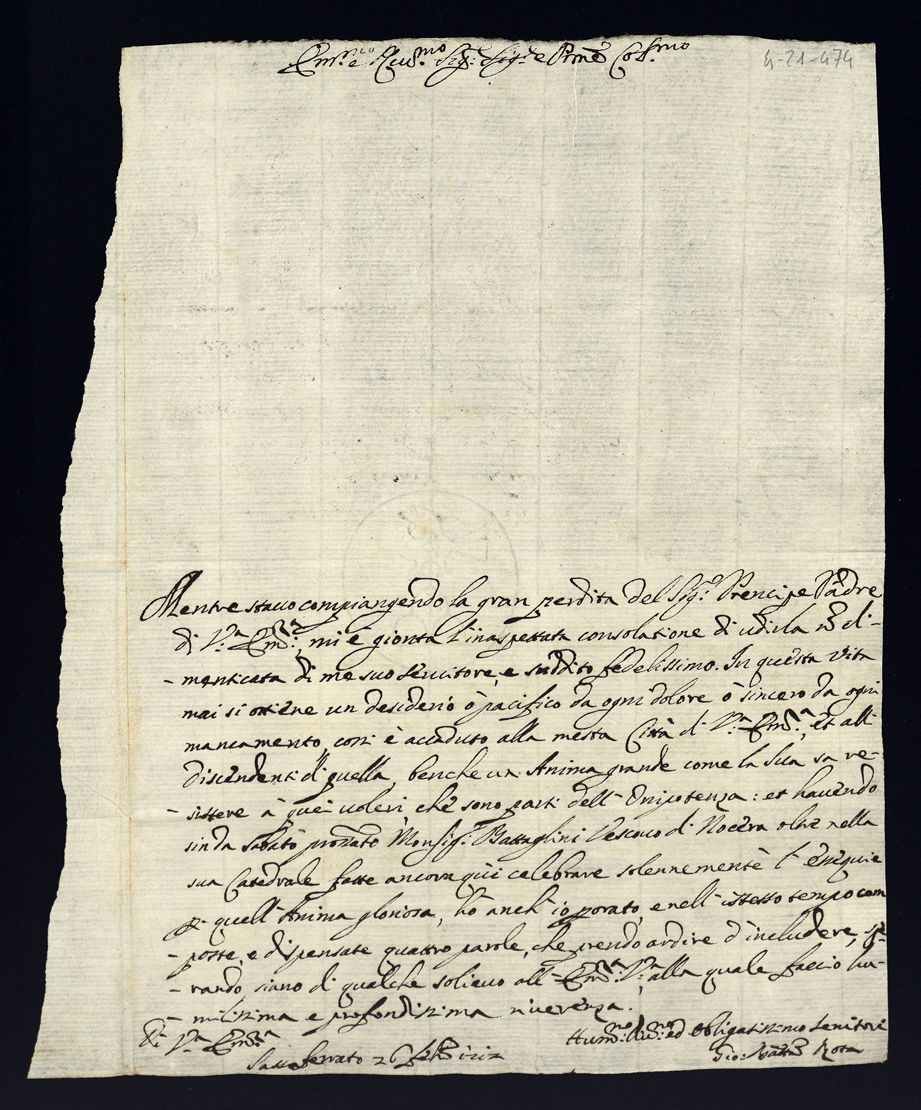 Em.mo e Reu.mo Sig.r Sig.r e Prone Col.mo
4-21-474
Mentre stauo compiangendo la gran perdita del Sig.r Prencipe Padre
di V.ra Em.za, mi è gionta l'inaspettata consolatione di udirla nõ di-
- menticata di me suo seruitore, e suddito fedelissimo. In questa vita
mai si ottiene un desiderio ò pacifico da ogni dolore ò sincero da ogni
mancamento, così è accaduto alla mesta Città di V.ra Em.za, et alli
discendenti di quella, benche un Anima grande come la Sua sa re-
- sistere à quei uoleri, che sono parti dell'Onipotenza: et hauendo
sin da Sabato Monsig.r Battaglini Vescouo di Nocera oltre nella
sua Catedrale fatte ancora qùi celebrare solennemente l'esequie
p quell'Anima gloriosa, hò anch'io orato, e nell'istesso tempo com
- poste, e dispensate quattro parole, che prendo ardire d'includere, spe
- rando siano di qualche solieuo all'Em.za V.ra alla quale faccio hu-
- milissima e profondissima riuerenza.
Di V.ra Em.za
Sassoferrato 26 1717
Hum.mo Diu.mo ed Obligatissimo Seruitore
Gio: Batta Rota